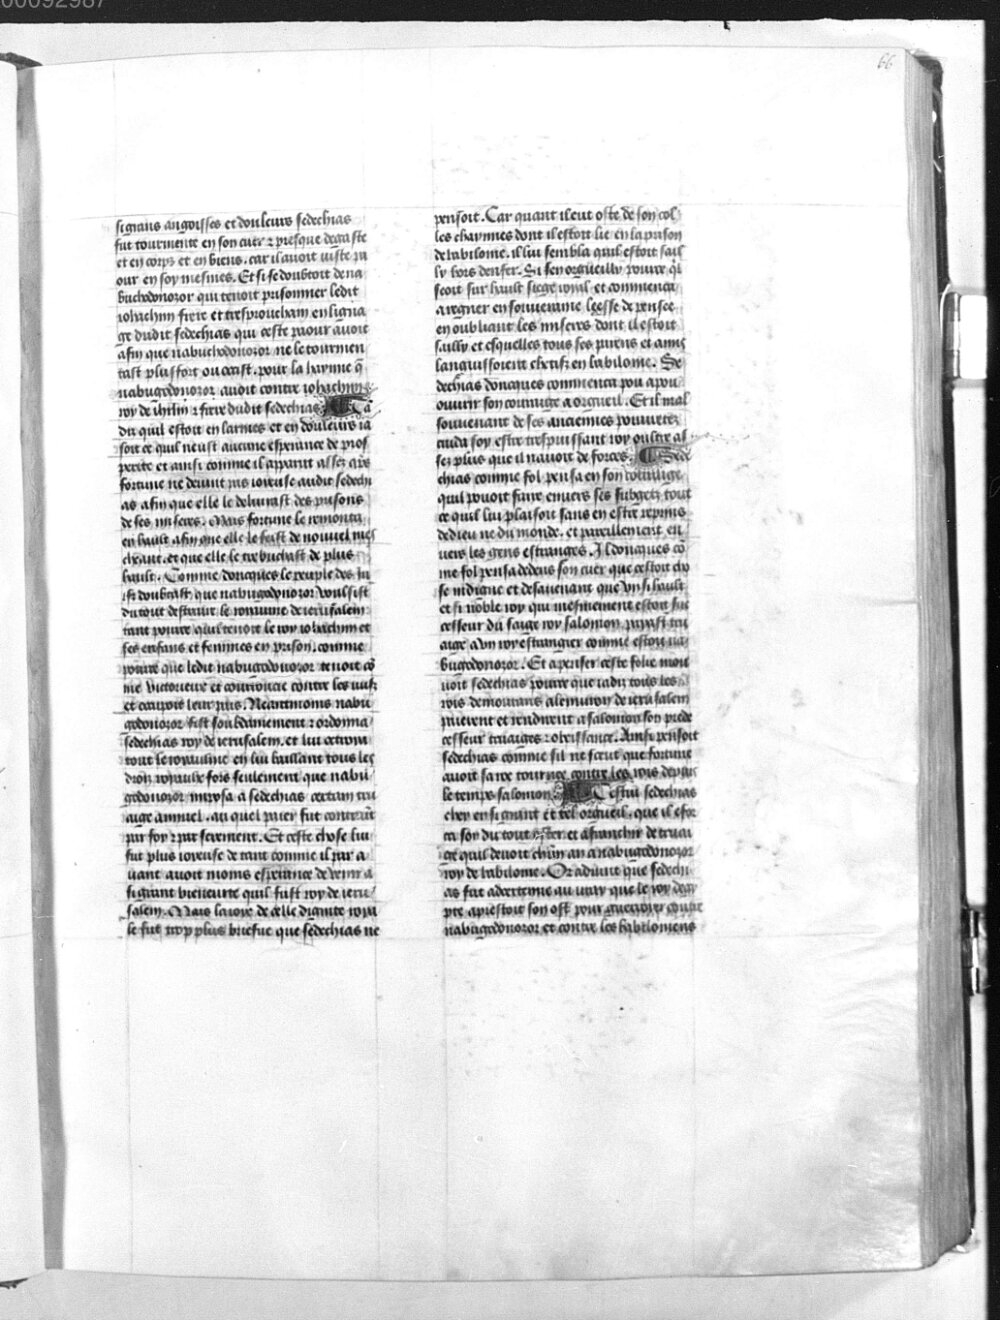 00092987
66
si grans angoisses et douleurs sedechias
fut tourmente en son cuer ⁊ presque degaste
et en corps et en biens. car il auoit uiste pa
our en soy mesmes. Et si se doubtoit de na
buchodonozor qui tenoit prisonnier ledit
iohachim frere et tresprouchain en ligna
ge dudit sedechias qui ceste paour auoit
afin que nabuchodonozor ne le tourmen
tast plus fort ou occist. pour la hayne q̄
nabugodonozor auoit contre iohachim
roy de ihrlm ⁊ frere dudit sedechias ¶ Ia
dit quil estoit en larmes et en douleurs ia
soit ce quil neust aucune esperance de pros
perite et ainsi comme il apparut assez apres
fortune ne deuint pas ioieuse audit sedechi
as afin que elle le deliurast des prisons
de ses miseres. Mais fortune le remonta
en hault afin que elle le feist de nouuel mes
cheant. et que elle le trebuchast de plus
hault. Comme doncques le peuple des iu
ifz doubtast que nabugodonozor voulsist
du tout destruire le royaume de ierusalem
tant pource quil tenoit le roy iohachim et
ses enfans et femmes en prison. comme
pource que ledit nabugodonozor tenoit cō
me victorieux et courroucie contre les iuifz
et occupoit leur pais. Neantmoins nabu
godonozor fist soubdainement ⁊ ordonna
sedechias roy de ierusalem. et lui octroia
tout le royaulme en lui baillant tous les
droiz royaulx fors seulement que nabu
godonozor imposa a sedechias certain tru
aige annuel. au quel paier fut contraint
par foy ⁊ par serement. Et ceste chose lui
fut plus ioyeuse de tant comme il par a
uant auoit moins esperance de venir a
si grant bieneurte quil fust roy de ieru
salem. Mais la ioye de celle dignite roya
le fut trop plus briefue que sedechias ne
pensoit. Car quant il eut oste de son col
les chaynnes dont il estoit lie en la prison
de babilonne. il lui sembla quil estoit sail
ly hors denfer. Si sen orgueilly pource q̄l
seoit sur hault siege royal et commenca
a regner en souueraine leesse de pensee
en oubliant les miseres dont il estoit
sailly et esquelles tous ses parens et amis
languissoient chetifz en babilonne. Se
dechias doncques commenca pou a pou
ouurir son couraige a orgueil. Et il mal
souuenant de ses anciennes pouuretez
cuida soy estre trespuissant roy oultre as
sez plus que il nauoit de forces. ¶ Sede
chias comme fol pensa en son couraige
quil pouoit faire enuers ses subgetz tout
ce quil lui plaisoit sans en estre reprins
de dieu ne du monde. et pareillement en
uers les gens estranges. Il doncques cō
me fol pensa dedens son cuer que cestoit cho
se indigne et desauenant que vn si hault
et si noble roy qui mesmement estoit suc
cesseur du saige roy salomon paiast tru
aige a vn roy estrangier comme estoit na
bugodonozor. Et a penser ceste folie mou
uoit sedechias pource que iadis tous les
rois demourans alenuiron de ierusalem
paierent et rendirent a salomon son prede
cesseur truaiges ⁊ obeissance. Ainsi pensoit
sedechias comme sil ne sceut que fortune
auoit sa roe tournee contre les rois depuis
le temps salomon. ¶ Cestui sedechias
chey en si grant et tel orgueil. que il efor
ca soy du tout oster et afranchir de truai
ge quil deuoit chūn an a nabugodonozor
roy de babilonne. Or aduint que sedechi
as fut aduertenu au vray que le roy degi
pte aprestoit son ost pour guerroier contre
nabugodonozor et contre les babiloniens